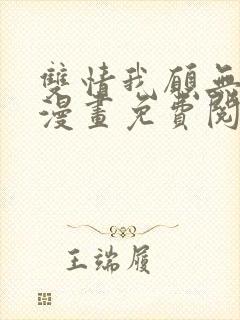 雙情我願無
漫畫免費閱
王端履